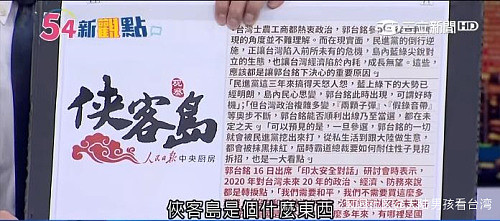 54新觀點
新聞HD
「台灣士農工商都熱衷政治，郭台銘參
現的角度並不難理解。而在現實面，民進黨的倒行逆
施，正讓台灣陷入前所未有的危機，島內藍綠尖銳對
立的生態，也讓台灣經濟陷於內耗，成長無望。這些
應該都是讓郭台銘下決心的重要原因
「民進黨這三年來搞得天怒人怨，藍上綠下的大勢已
經明朗，島內民心思變，郭台銘此時出現，可謂好時
機」;「但台灣政治複雜多變，『兩顆子彈』、『假錄音帶』
等奧步不斷，郭台銘能否順利出線乃至當選，都在未
定之天」「可以預見的是，一旦參選，郭台銘的一切
就會被民進黨挖出來打，從私生活到跟大陸做生意，
都會被抹黑抹紅，屆時霸道總裁要如何耐住性子見招
拆招，也是一大看點
郭台銘16日出席「印太安全對話」研討會時表示，
2020年對台灣未來20年的政治、經濟、防務來說
都是轉捩點「我們需要和平，我們不需要買這麼多
俠客島
人民日報中央廚房
俠客島是個什麼東西
男孩看台湾